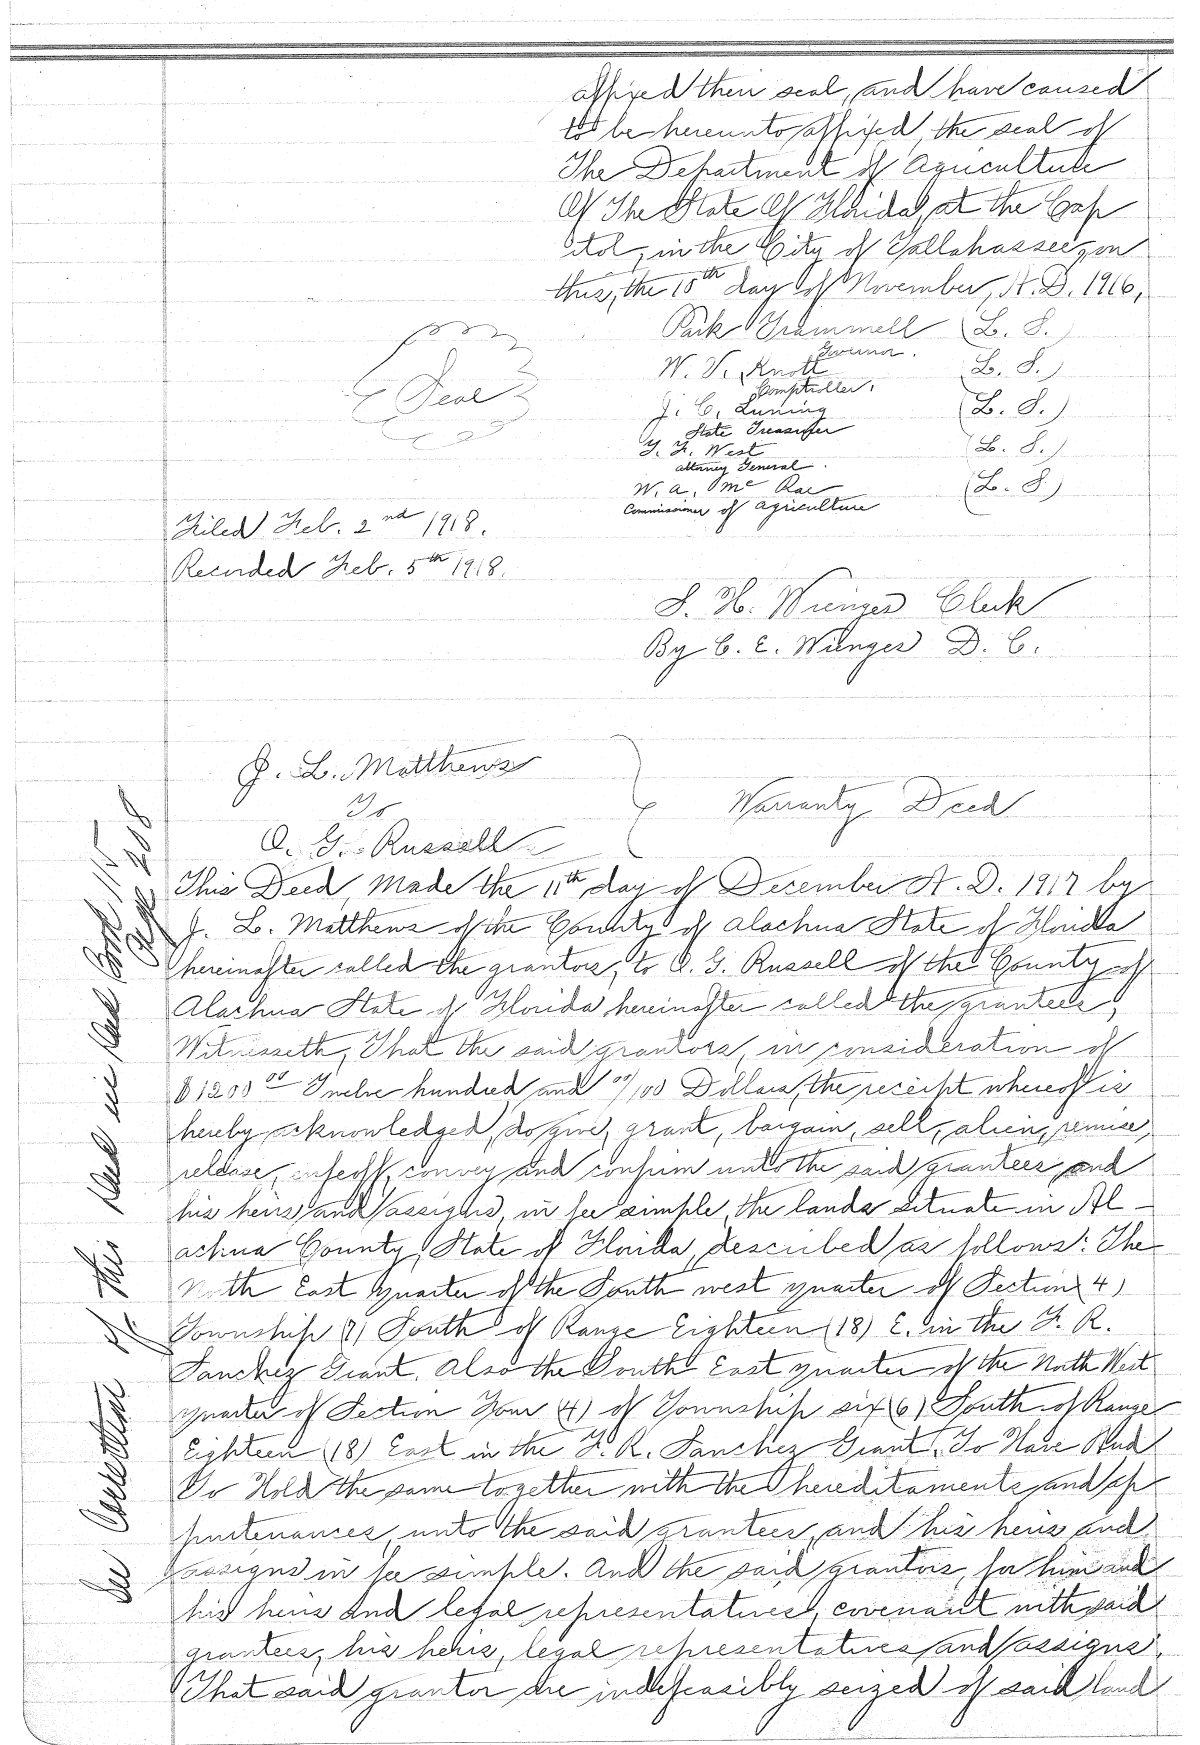 affixed their seal, and have caused
to be hereunto affixed, the seal of
The Department of Agriculture
Of The State Of Florida, at the Cap
itol, in the City of Tallahassee, on
this, the 15th day of November, A.D. 1916,
Park Trammell (L. S.)
Governor.
W. V. Knott (L. S.)
Comptroller,
J. C. Luning (L. S.)
State Treasurer
T. F. West (L. S.)
Attorney General.
W. A. Mc Rae (L. S)
Commissioner of Agriculture
Seal
Filed Feb. 2nd 1918.
Recorded Feb. 5th 1918.
S. H. Wienges Clerk
By C. E. Wienges D. C.
J. L. Matthews
To
O. G. Russell
Warranty Deed
This Deed, Made the 11th day of December A. D. 1917 by
J. L. Matthews of the County of Alachua State of Florida
hereinafter called the grantors, to O. G. Russell of the County of
Alachua State of Florida hereinafter called the grantees,
Witnesseth, That the said grantors, in consideration of
$1200 00 Twelve hundred and 00/100 Dollars, the receipt whereof is
hereby acknowledged, do give, grant, bargain, sell, alien, remise,
release, enfeoff, convey and confirm unto the said grantees and
his heirs and assigns, in fee simple, the lands situate in Al-
achua County, State of Florida, described as follows: The
North East quarter of the South west quarter of Section (4)
Township (7) South of Range Eighteen (18) E. in the F. R.
Sanchez Grant. Also the South East quarter of the North West
quarter of Section Four (4) of Township six (6) South of Range
Eighteen (18) East in the F. R. Sanchez Grant. To Have And
To Hold the same together with the hereditaments and ap
purtenances, unto the said grantees, and his heirs and
assigns in fee simple. And the said grantors, for him and
his heirs and legal representatives, covenant with said
grantees, his heirs, legal representatives and assigns:
That said grantor are indefeasibly seized of said land
See Correction of this Deed in Deed Book 115
Page 208